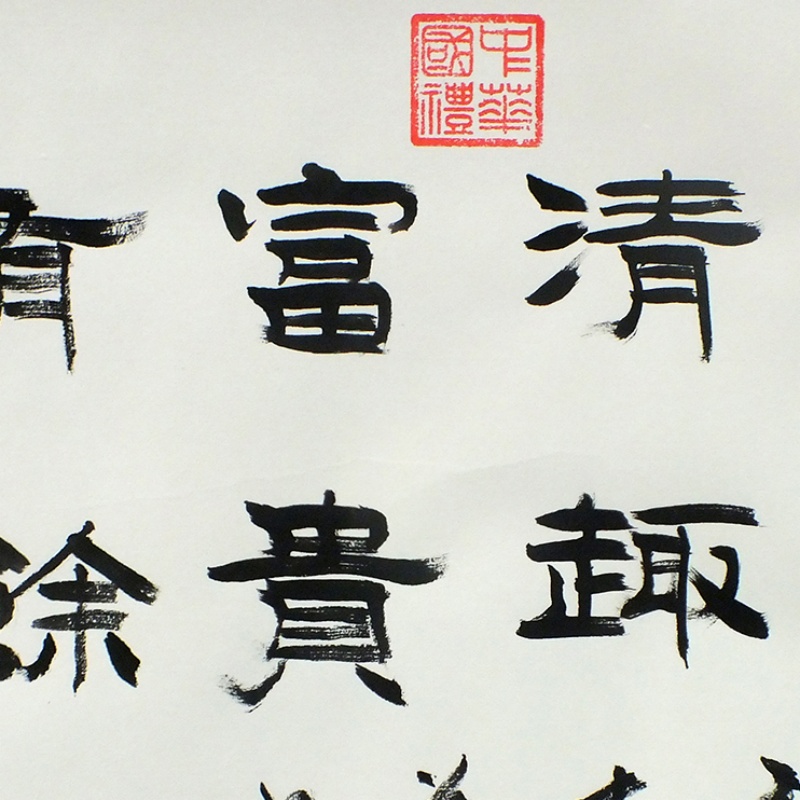 中華國禮
清趣
富貴
有餘